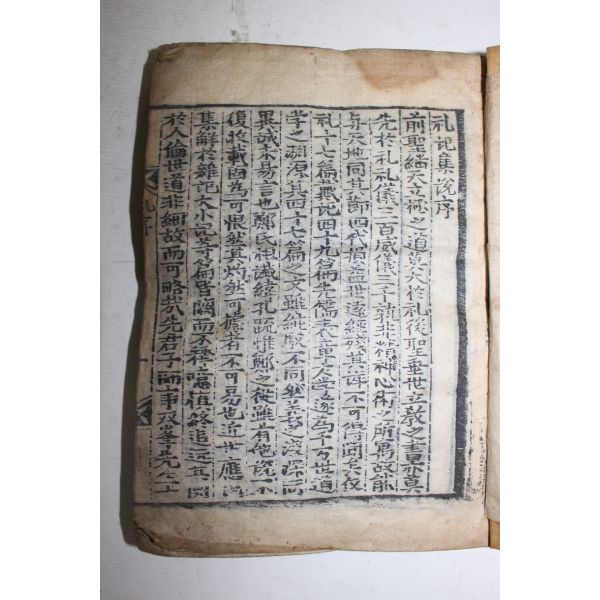 礼記集說序
前聖繼天立極之道莫大於礼後聖垂世立敎之書亦莫
先於礼礼儀三百威儀三千孰非精神心術之所寓故能
与天地同其節四代損益世遠經殘其詳不可得聞矣仪
礼十七篇戴記四十九篇先儒表章庸学遂爲千万世道
学之淵源其四十七篇之文雖純駁不同然義之淺深同
異誠未易言也鄭氏祖讖緯孔疏惟鄭之從雖有他說不
復收載固爲可恨然其灼然可據者不可易也近世應氏
集解於雜記大小記等篇皆闕而不釋噫愼終追远其関
於人倫世道非細故而可略哉先君子師事双峯先生十
礼序